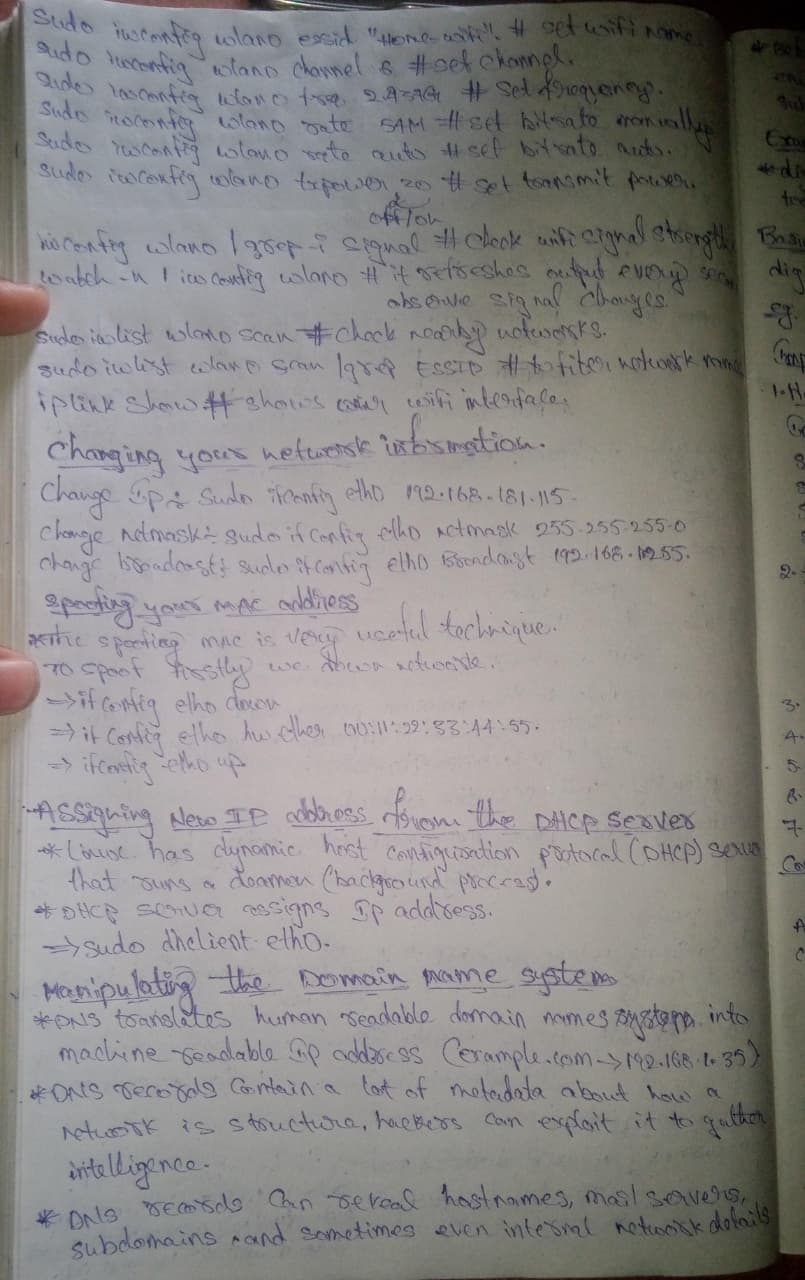 sudo iwconfig wlano essid "Home-wifi". # set wifi name.
sudo iwconfig wlano channel 6 #set channel.
sudo iwconfig wlano freq 2.437G # set frequency.
sudo iwconfig wlano rate 54M # set bitrate manually
sudo iwconfig wlano rate auto # set bitrate auto.
sudo iwconfig wlano txpower 20 # set transmit power.
off/on
iwconfig wlano | grep -i signal # check wifi signal strength
watch -n 1 iwconfig wlano # it refreshes output every sec
observe signal changes
sudo iwlist wlano scan # check nearby networks.
sudo iwlist wlano scan | grep ESSID # to filter network name
ip link show # shows your wifi interface.
Changing your network information.
Change Ip: sudo ifconfig eth0 192.168.181.115
Change netmask: sudo ifconfig eth0 netmask 255.255.255.0
Change broadcast: sudo ifconfig eth0 Broadcast 192.168.1.255.
Spoofing your MAC address
*The spoofing mac is very useful technique.
To spoof firstly we down network.
=> ifconfig etho down
=> ifconfig etho hw ether 00:11:22:33:44:55.
=> ifconfig etho up
*Assigning New IP address from the DHCP server
* Linux has dynamic host configuration protocal (DHCP) server
that runs a deamon (background process).
* DHCP server assigns Ip address.
=> sudo dhclient etho.
Manipulating the Domain name system
*DNS translates human readable domain names system into
machine readable Ip address (example.com -> 192.168.1.35)
* DNS records contain a lot of metadata about how a
network is structure, hackers can exploit it to gather
intelligence.
* DNS records can reveal hostnames, mail servers,
subdomains and sometimes even internal network details